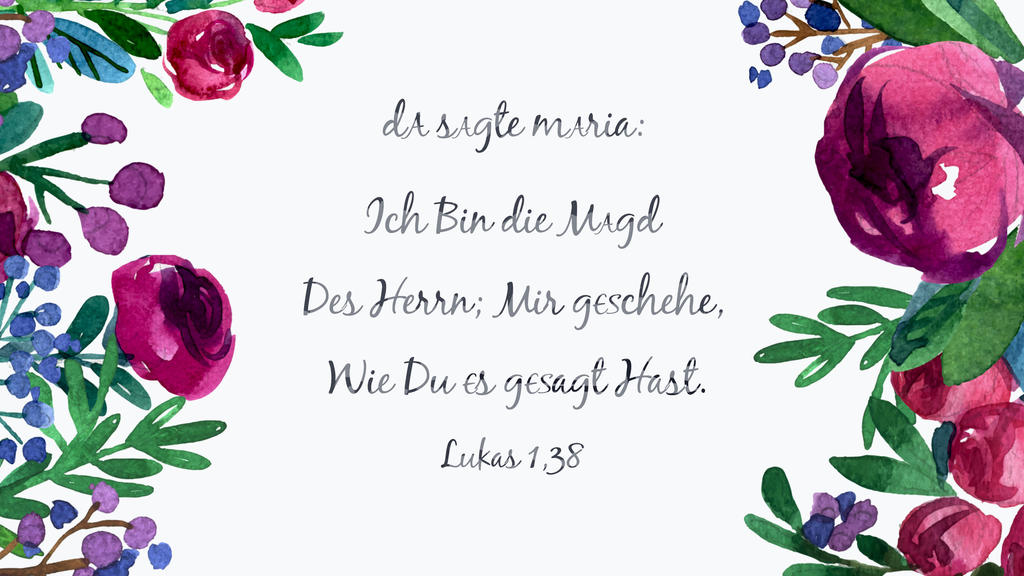 da sagte maria:
Ich Bin die Magd
Des Herrn; Mir geschehe,
Wie Du es gesagt Hast.
Lukas 1,38